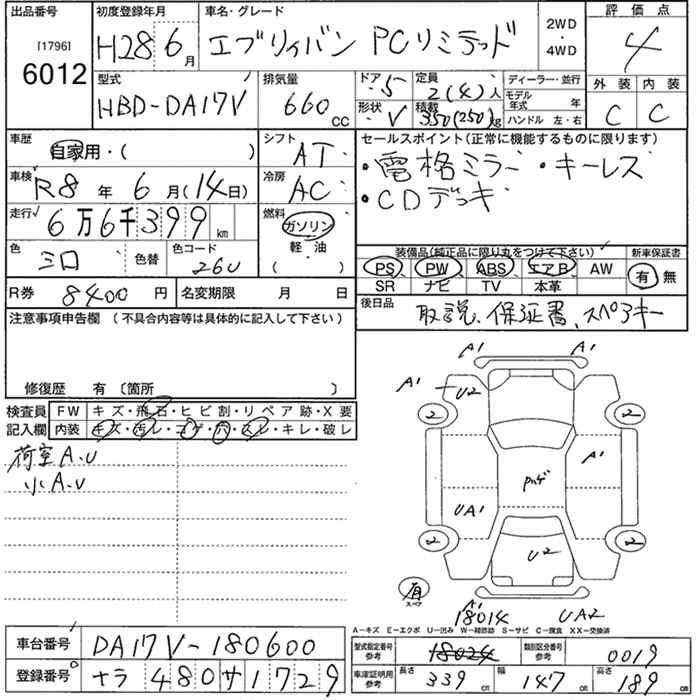 出品番号 初度登録年月 車名・グレード 2WD・4WD 評価点
[1796] 6012 H28 6月 エブリイバン PCリミテッド 4
型式 排気量 ドア 5 定員 2(4)人 ディーラー・並行 外装 内装
HBD-DA17V 660CC 形状 V 積載 350(250)kg モデル年式 年 C C
ハンドル 左・右
車歴 シフト セールスポイント(正常に機能するものに限ります)
自家用・( ) AT ・電格ミラー・キーレス
車検 R8年 6月(14日) 冷房 AC ・CDデッキ
走行 6万6千399km 燃料 ガソリン
軽・油
( )
色 色替 色コード 26U
装備品(純正品に限り丸をつけて下さい) 新車保証書
PS PW ABS エアB AW 有 無
SR ナビ TV 本革
R券 8400円 名変期限 月 日 後日品 取説、保証書、スペアキー
注意事項申告欄 (不具合内容等は具体的に記入して下さい)
修復歴 有 〔箇所 〕
検査員 FW キズ・飛石・ヒビ割・リペア跡・X要
記入欄 内装 キズ・汚レ・コゲ・穴・スレ・キレ・破レ
荷室A.U
小A.U
A1 A1
A1 U2
2 2
A1
UA1
2 2
U2
有
スペア
A1
18014 UA2
A-キズ E-エクボ U-凹み W-補修跡 S-サビ C-腐食 XX-交換済
車台番号 DA17V-180600 型式指定番号 参考 18024 類別区分番号 参考 0019
登録番号 ナラ 480 サ 1729 車庫証明用 参考 長さ 339cm 幅 147cm 高さ 189cm